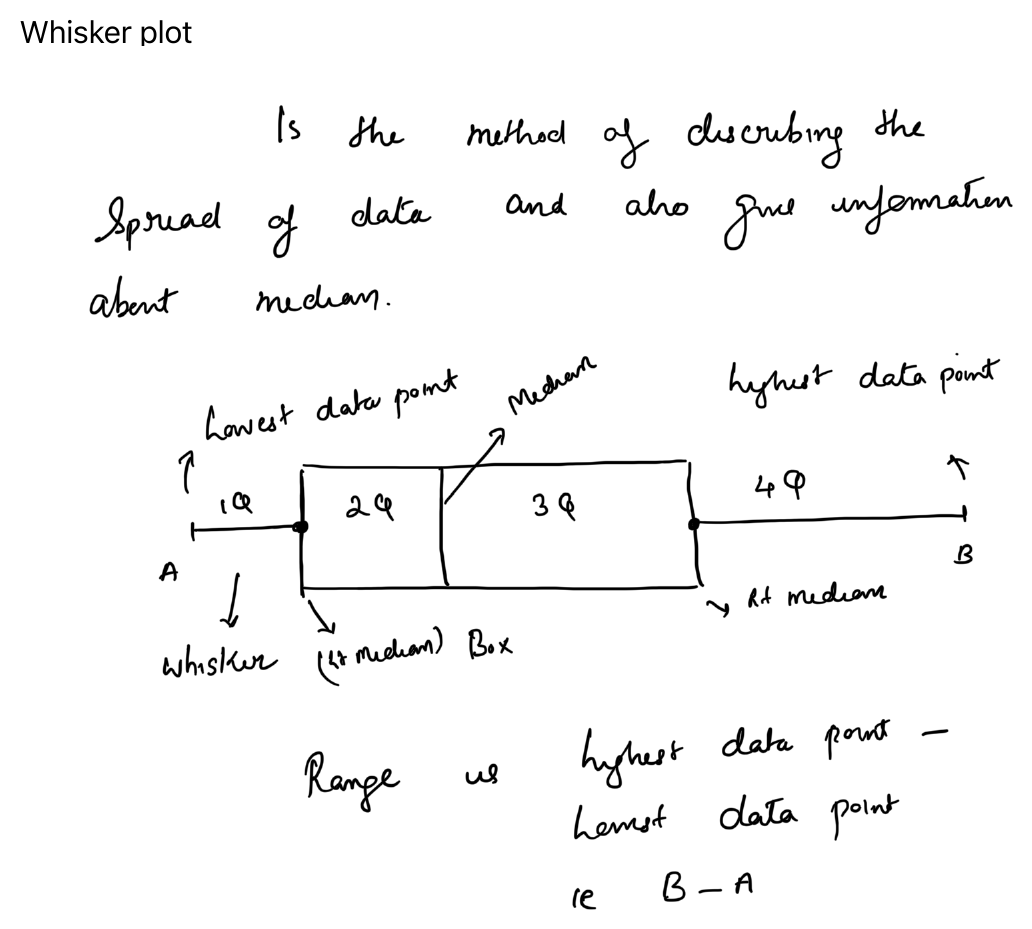 Whisker plot
Is the method of discribing the
Spread of data and also give information
about median.
highest data point
Lowest data point
Median
1Q 2Q 3Q 4Q
A B
Rt median
Whisker (Lt Median) Box
Range is highest data point –
lowest data point
ie B – A